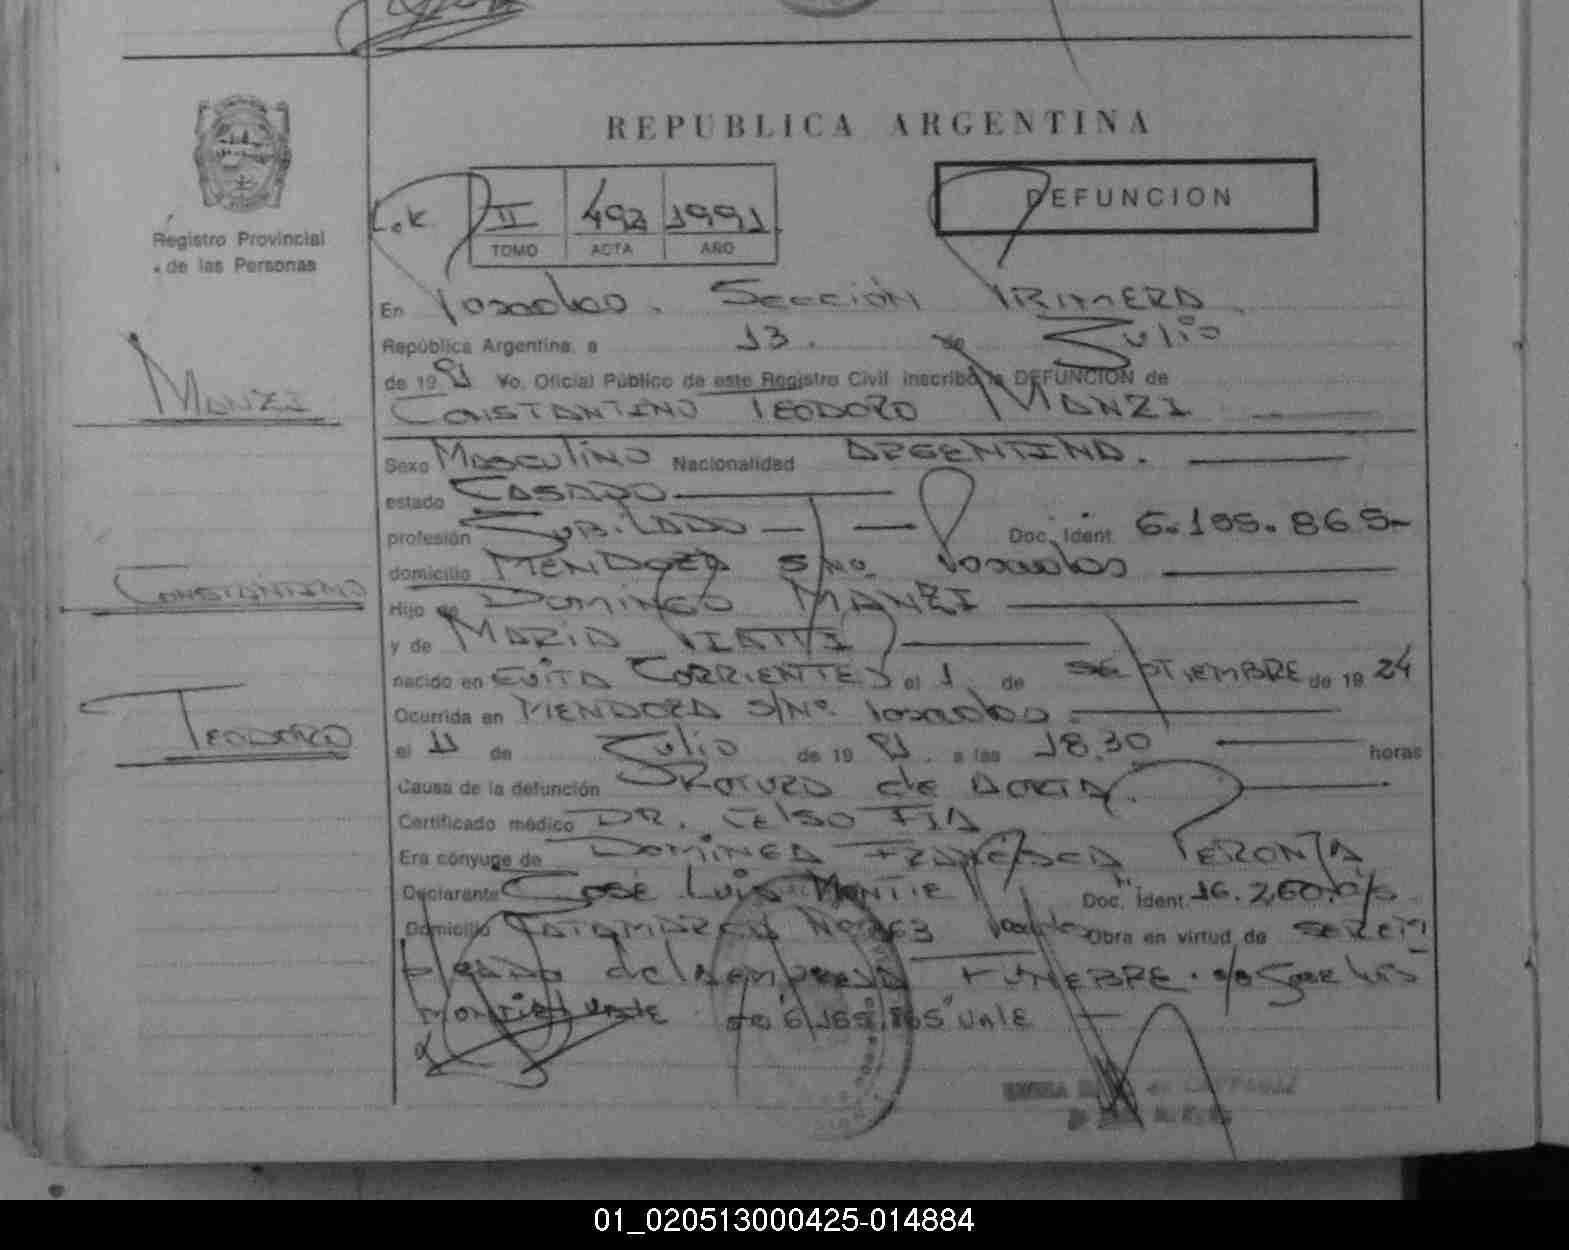 REPUBLICA ARGENTINA
DEFUNCION
II 492 1991
TOMO ACTA AÑO
Registro Provincial
de las Personas
En Posadas. Sección PRIMERA
República Argentina, a 13. de Julio
de 1991 Yo, Oficial Público de este Registro Civil inscribo la DEFUNCION de
CONSTANTINO TEODORO MANZI
MANZI
Sexo Masculino Nacionalidad ARGENTINA.
estado CASADO
profesión JUBILADO Doc. Ident. 6.185.865-
domicilio MENDOZA S/No. Posadas
CONSTANTINO
Hijo de DOMINGO MANZI
y de MARIA
nacido en CORRIENTES el 1 de SEPTIEMBRE de 1924
TEODORO
Ocurrida en MENDOZA S/Nº. Posadas
el 11 de Julio de 1991. a las 18.30 horas
Causa de la defunción ROTURA de AORTA.
Certificado médico DR. CELSO
Era cónyuge de DOMINGA FRANCISCA
Declarante JOSE LUIS MONTIE Doc. Ident. 16.260.
Domicilio CATAMARCA Nº Posadas Obra en virtud de SER EM
PLEADO de la empresa FUNEBRE. JOSE LUIS
MONTIEL Vale 6.185.865 VALE
01_020513000425-014884